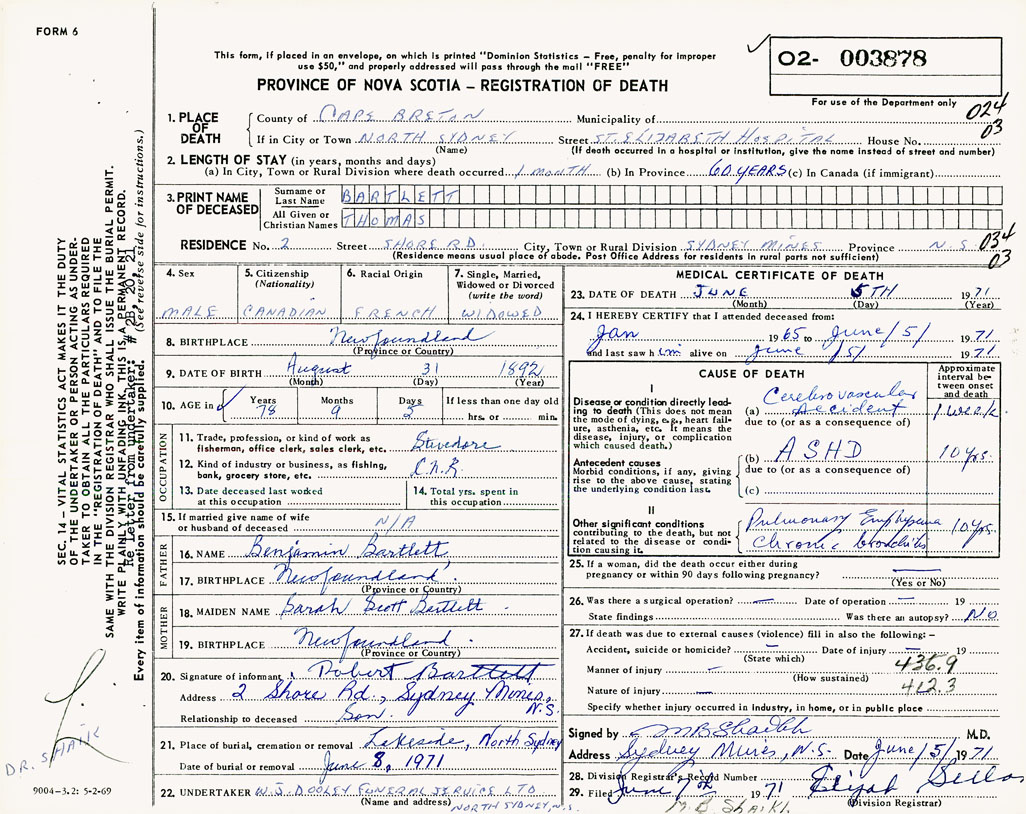 FORM 6
This form, if placed in an envelope, on which is printed "Dominion Statistics – Free, penalty for improper
use $50," and properly addressed will pass through the mail "FREE"
PROVINCE OF NOVA SCOTIA – REGISTRATION OF DEATH
02- 003878
For use of the Department only
024
03
1. PLACE OF DEATH
County of CAPE BRETON Municipality of
If in City or Town NORTH SYDNEY Street ST. ELIZABETH HOSPITAL House No.
(Name) (If death occurred in a hospital or institution, give the name instead of street and number)
2. LENGTH OF STAY (in years, months and days)
(a) In City, Town or Rural Division where death occurred 1 MONTH (b) In Province 60 YEARS (c) In Canada (if immigrant)
3. PRINT NAME OF DECEASED
Surname or Last Name BARTLETT
All Given or Christian Names THOMAS
RESIDENCE No. 2 Street SHORE RD. City, Town or Rural Division SYDNEY MINES Province N.S. 034
(Residence means usual place of abode. Post Office Address for residents in rural parts not sufficient) 03
4. Sex
MALE
5. Citizenship
(Nationality)
CANADIAN
6. Racial Origin
FRENCH
7. Single, Married,
Widowed or Divorced
(write the word)
WIDOWED
8. BIRTHPLACE Newfoundland
(Province or Country)
9. DATE OF BIRTH August 31 1892
(Month) (Day) (Year)
10. AGE in Years Months Days If less than one day old
78 9 5 hrs. or min.
OCCUPATION
11. Trade, profession, or kind of work as
fisherman, office clerk, sales clerk, etc. Stevedore
12. Kind of industry or business, as fishing,
bank, grocery store, etc. C.N.R.
13. Date deceased last worked
at this occupation
14. Total yrs. spent in
this occupation
15. If married give name of wife
or husband of deceased N/A
FATHER
16. NAME Benjamin Bartlett
17. BIRTHPLACE Newfoundland
(Province or Country)
MOTHER
18. MAIDEN NAME Sarah Scott Bartlett
19. BIRTHPLACE Newfoundland
(Province or Country)
20. Signature of informant Robert Bartlett
Address 2 Shore Rd., Sydney Mines, N.S.
Relationship to deceased Son.
21. Place of burial, cremation or removal Lakeside, North Sydney
Date of burial or removal June 8, 1971
22. UNDERTAKER W.J. DOOLEY FUNERAL SERVICE LTD
(Name and address) NORTH SYDNEY, N.S.
MEDICAL CERTIFICATE OF DEATH
23. DATE OF DEATH JUNE 5TH 1971
(Month) (Day) (Year)
24. I HEREBY CERTIFY that I attended deceased from:
Jan 1965 to June/5/ 1971
and last saw him alive on June /5/ 1971
CAUSE OF DEATH
Approximate interval between onset and death
I
Disease or condition directly leading
to death (This does not mean
the mode of dying, e.g., heart failure,
asthenia, etc. It means the
disease, injury, or complication
which caused death.)
(a) Cerebrovascular Accident 1 week
due to (or as a consequence of)
Antecedent causes
Morbid conditions, if any, giving
rise to the above cause, stating
the underlying condition last.
(b) ASHD 10 yrs.
due to (or as a consequence of)
(c)
II
Other significant conditions
contributing to the death, but not
related to the disease or condition
causing it.
Pulmonary Emphysema 10 yrs.
Chronic bronchitis
25. If a woman, did the death occur either during
pregnancy or within 90 days following pregnancy? —
(Yes or No)
26. Was there a surgical operation? — Date of operation — 19
State findings Was there an autopsy? NO
27. If death was due to external causes (violence) fill in also the following:–
Accident, suicide or homicide? — Date of injury — 19
(State which)
436.9
Manner of injury —
(How sustained)
412.3
Nature of injury —
Specify whether injury occurred in industry, in home, or in public place
Signed by M B Shaikh M.D.
Address Sydney Mines, N.S. Date June/5/1971
28. Division Registrar's Record Number
29. Filed June 7 1971 Elijah
(Division Registrar)
M. B. Shaikh
SEC. 14 – VITAL STATISTICS ACT MAKES IT THE DUTY
OF THE UNDERTAKER OR PERSON ACTING AS UNDER-
TAKER TO OBTAIN ALL THE PARTICULARS REQUIRED
IN THE "REGISTRATION OF DEATH" AND TO FILE THE
SAME WITH THE DIVISION REGISTRAR WHO SHALL ISSUE THE BURIAL PERMIT.
WRITE PLAINLY WITH UNFADING INK. THIS IS A PERMANENT RECORD.
Re Letter from undertaker: # 2B, 20, 21
Every item of information should be carefully supplied. (See reverse side for instructions.)
DR. SHAIK
9004–3.2: 5-2-69